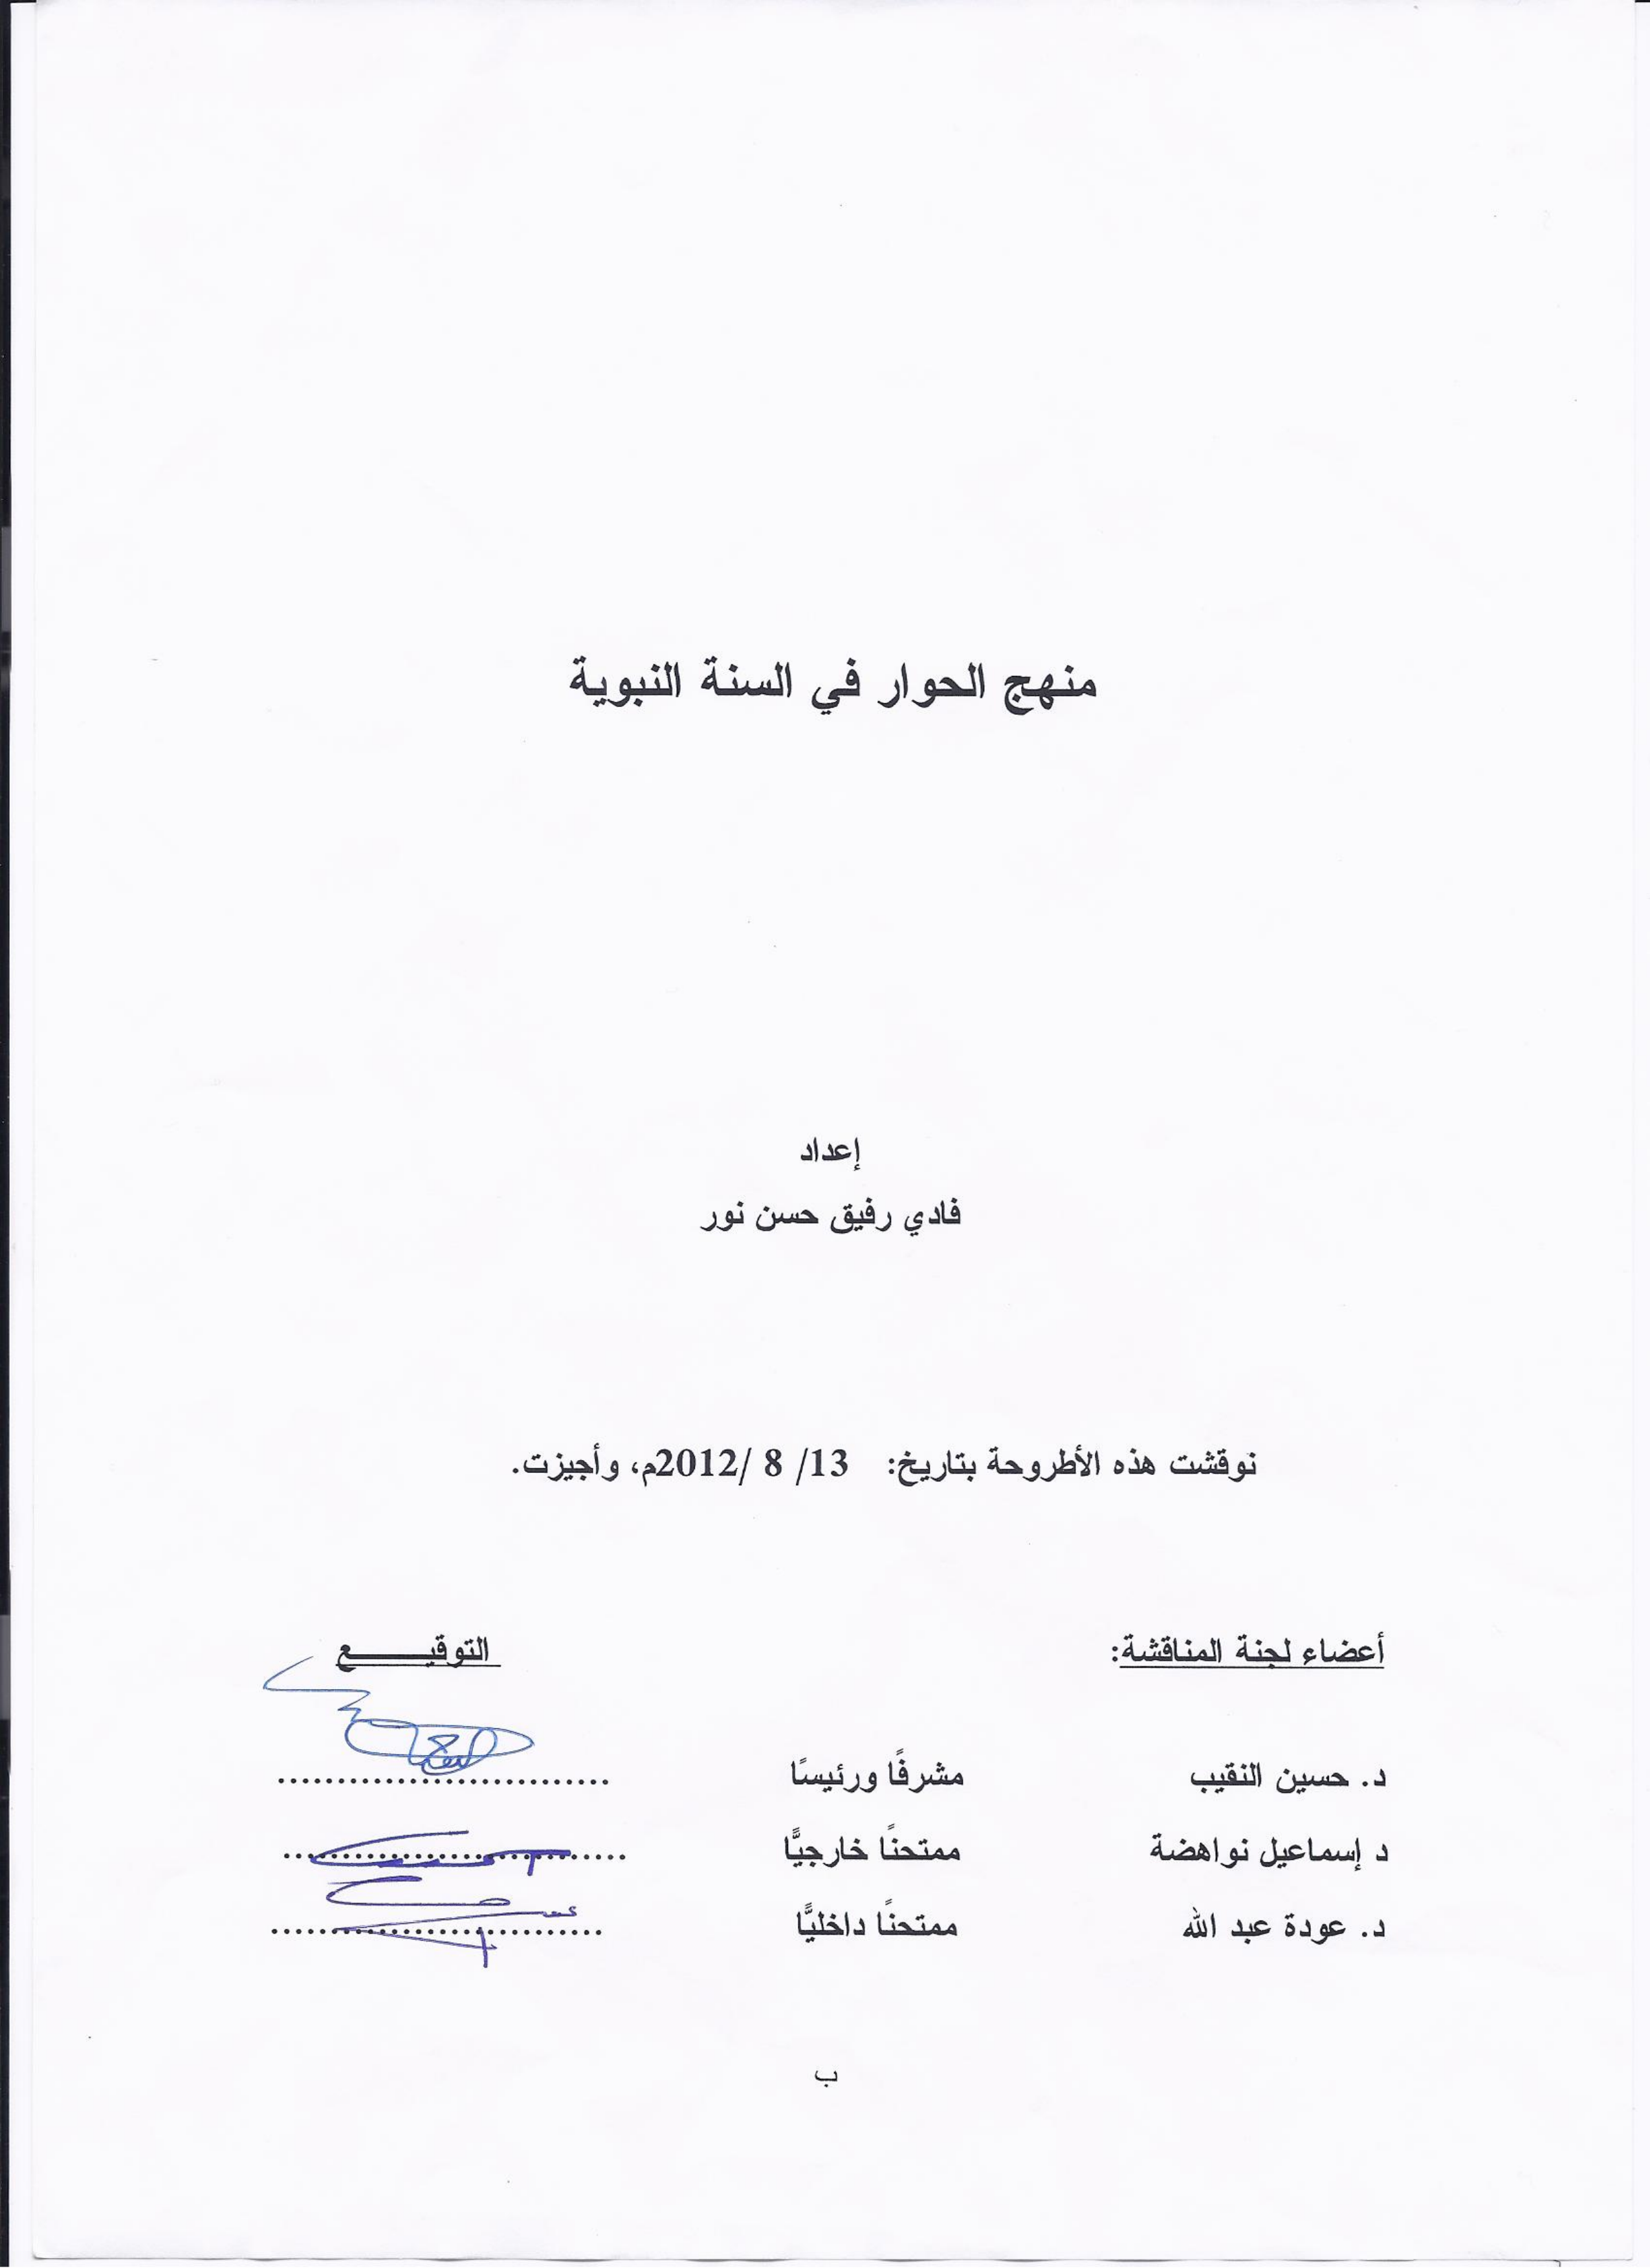 منهج الحوار في السنة النبوية
إعداد
فادي رفيق حسن نور
نوقشت هذه الأطروحة بتاريخ: 13/ 8 /2012م، وأجيزت.
أعضاء لجنة المناقشة: التوقيـــــــع
د. حسين النقيب مشرفًا ورئيسًا ............................
د إسماعيل نواهضة ممتحنًا خارجيًّا .............................
د. عودة عبد الله ممتحنًا داخليًّا ............................
ب